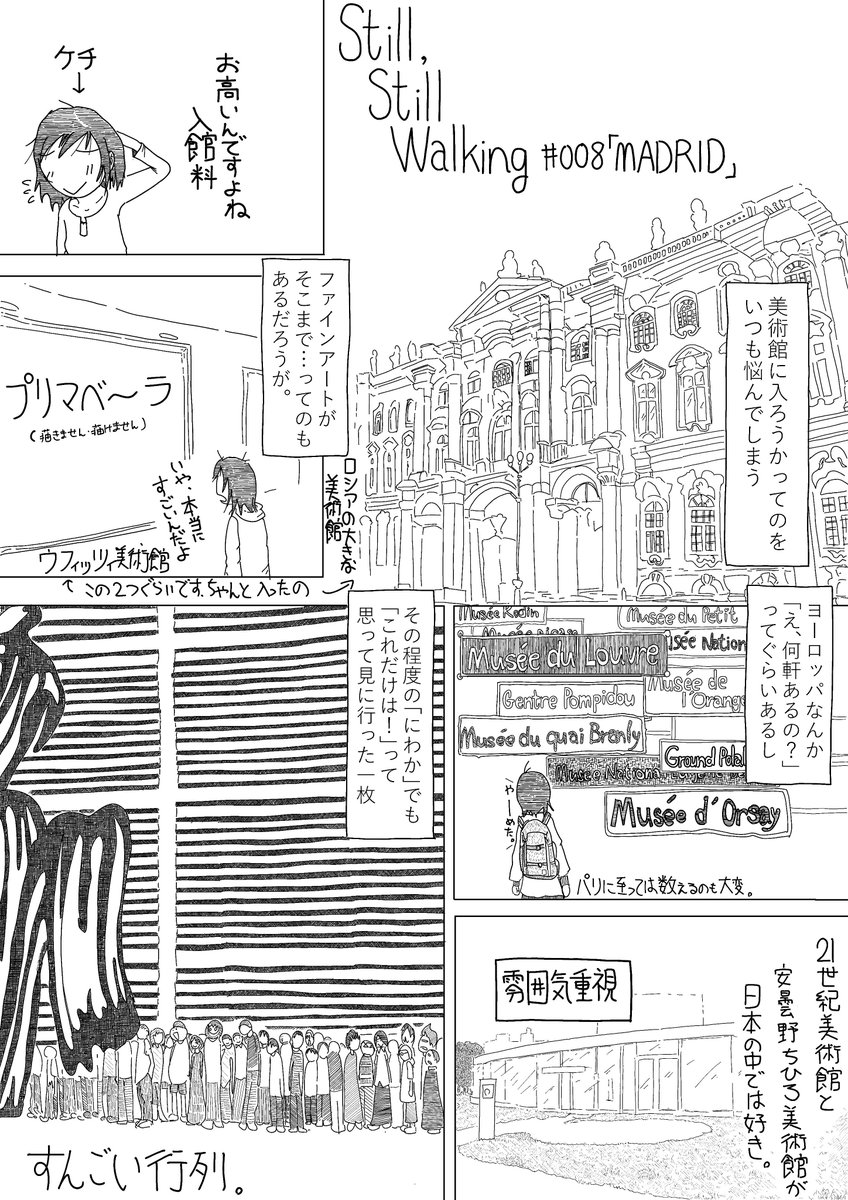 Still,
Still
Walking #008「MADRID」
美術館に入ろうかってのを
いつも悩んでしまう
ロシアの大きな
美術館
お高いんですよね
入館料
ケチ
↓
ファインアートが
そこまで…ってのも
あるだろうが。
プリマベ〜ラ
(描きません・描けません)
いや、本当に
すごいんだよ
ウフィッツィ美術館
この2つぐらいです、ちゃんと入ったの
ヨーロッパなんか
「え、何軒あるの？」
ってぐらいあるし
Musée Rodin
Musée du Petit
Musée du Louvre
Gentre Pompidou
Musée de
l'Orange
Musée du quai Branly
Ground Palai
Musée Nationa
Musée d'Orsay
やーめた。
パリに至っては数えるのも大変。
その程度の「にわか」でも
「これだけは！」って
思って見に行った一枚
すんごい行列。
21世紀美術館と
安曇野ちひろ美術館が
日本の中では好き。
雰囲気重視